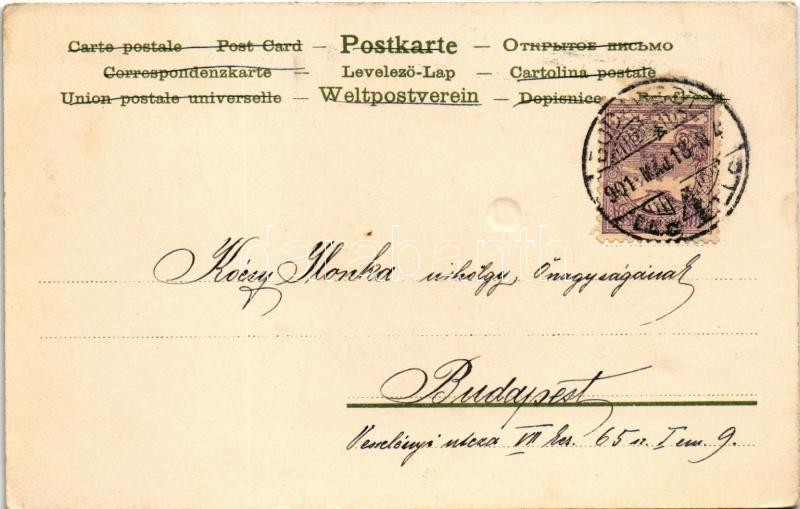 Carte postale — Post Card — Postkarte — Открытое письмо
Correspondenzkarte — Levelező-Lap — Cartolina postale
Union postale universelle — Weltpostverein — Dopisnice —
BUDAPEST
901 MÁJ 18 N
darabanth
Kóczy Ilonka úrhölgy, Őnagyságának
Budapest
Vesselényi utcza VII ker. 65 sz. I em. 9.